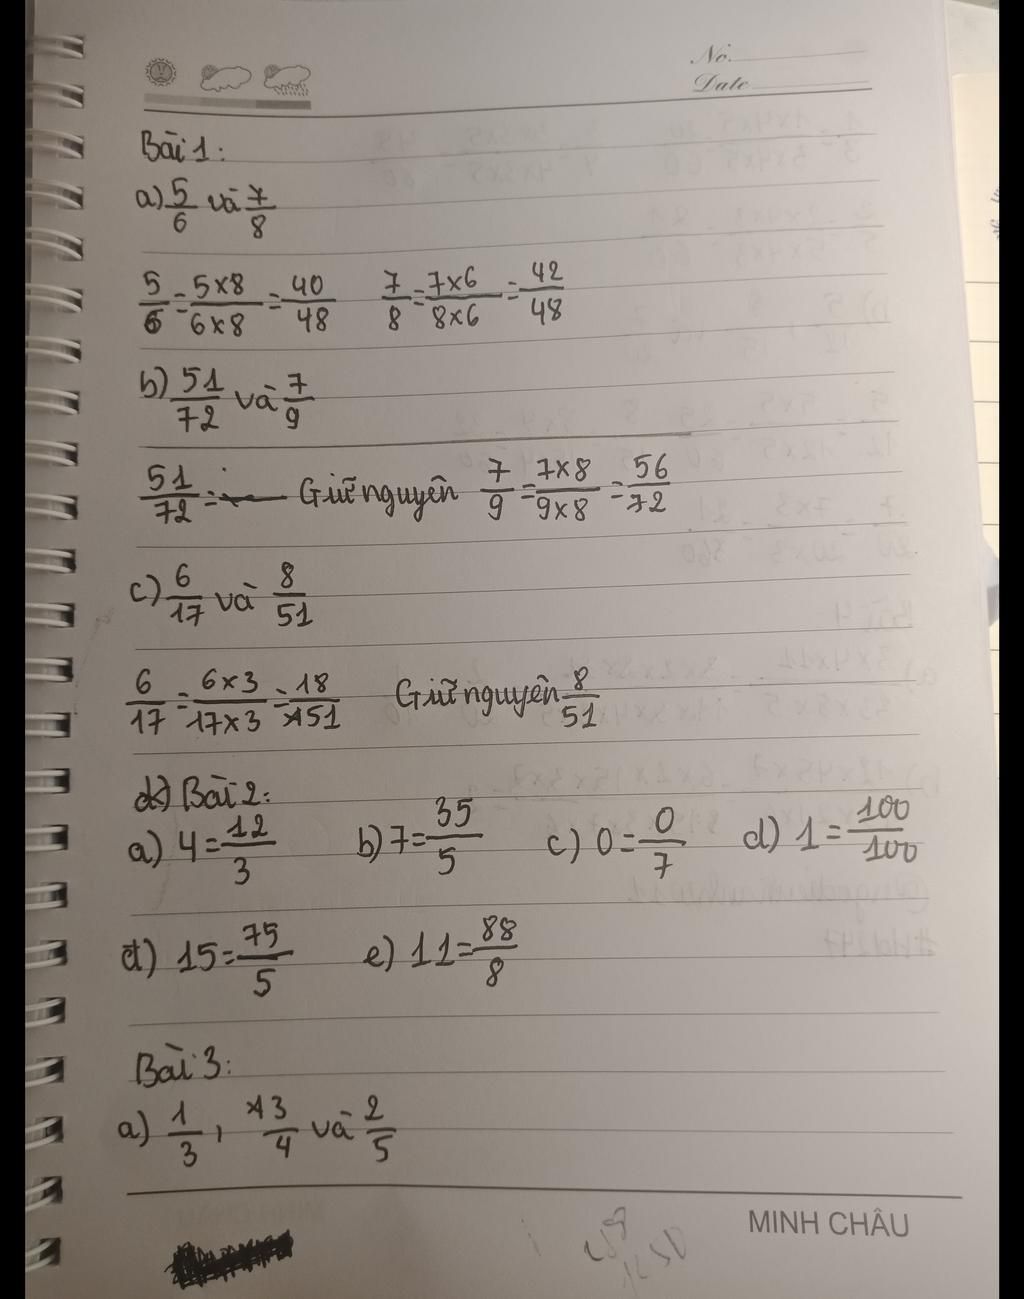 No.
Date
Bài 1:
a) 5/6 và 7/8
5/6 = 5×8/6×8 = 40/48 7/8 = 7×6/8×6 = 42/48
b) 51/72 và 7/9
51/72 = Giữ nguyên 7/9 = 7×8/9×8 = 56/72
c) 6/17 và 8/51
6/17 = 6×3/17×3 = 18/51 Giữ nguyên 8/51
Bài 2:
a) 4 = 12/3 b) 7 = 35/5 c) 0 = 0/7 d) 1 = 100/100
đ) 15 = 75/5 e) 11 = 88/8
Bài 3:
a) 1/3, 3/4 và 2/5
MINH CHÂU